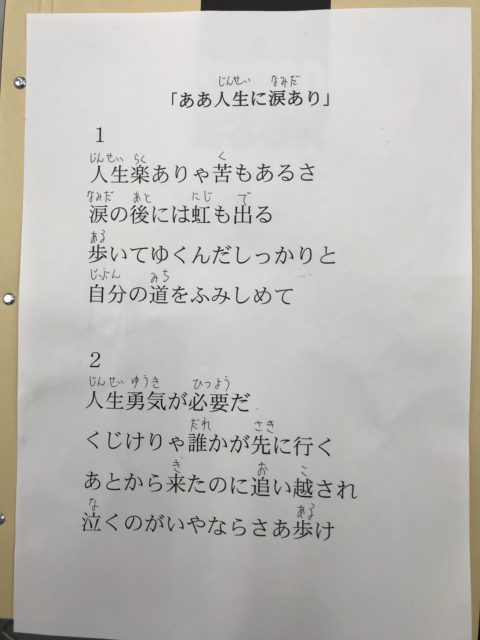 「ああ人生に涙あり」
じんせい なみだ
1
じんせい らく く
人生楽ありゃ苦もあるさ
なみだ あと にじ で
涙の後には虹も出る
ある
歩いてゆくんだしっかりと
じぶん みち
自分の道をふみしめて
2
じんせい ゆうき ひつよう
人生勇気が必要だ
だれ さき
くじけりゃ誰かが先に行く
き お こ
あとから来たのに追い越され
な ある
泣くのがいやならさあ歩け